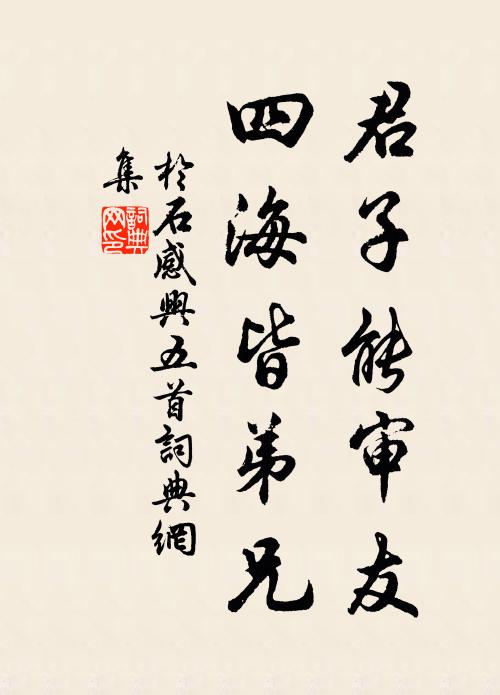 君子能审友
四海皆弟兄
於石感興五首詞典網
集
詞典网印